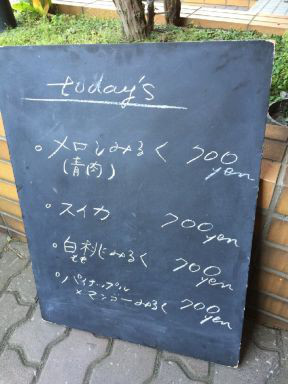 today's
○ メロンみるく 700 yen
(青肉)
○ スイカ 700 yen
○ 白桃みるく 700 yen
もも
○ パイナップル
×マンゴーみるく 700 yen